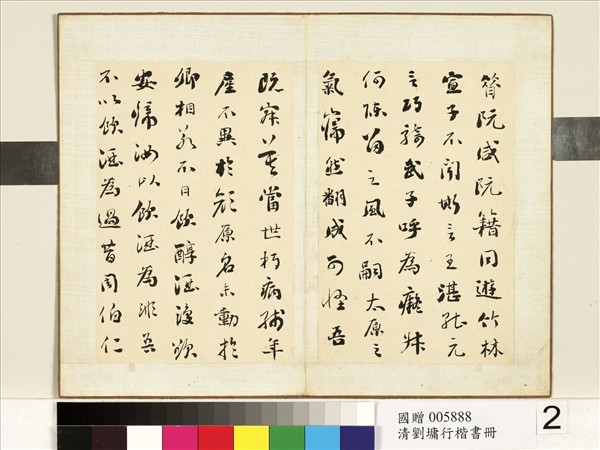 昔阮咸阮籍同遊竹林
宣子不聞斯言王湛能元
言巧騎武子呼為癡叔
何陳留之風不嗣太原之
氣巋然翻成可怪吾
既寂寞當世朽病殘年
產不異於顏原名未動於
卿相若不日飲醇酒復欲
安歸汝以飲酒為非吾
不以飲酒為過昔周伯仁
國贈 005888
清劉墉行楷書冊
2